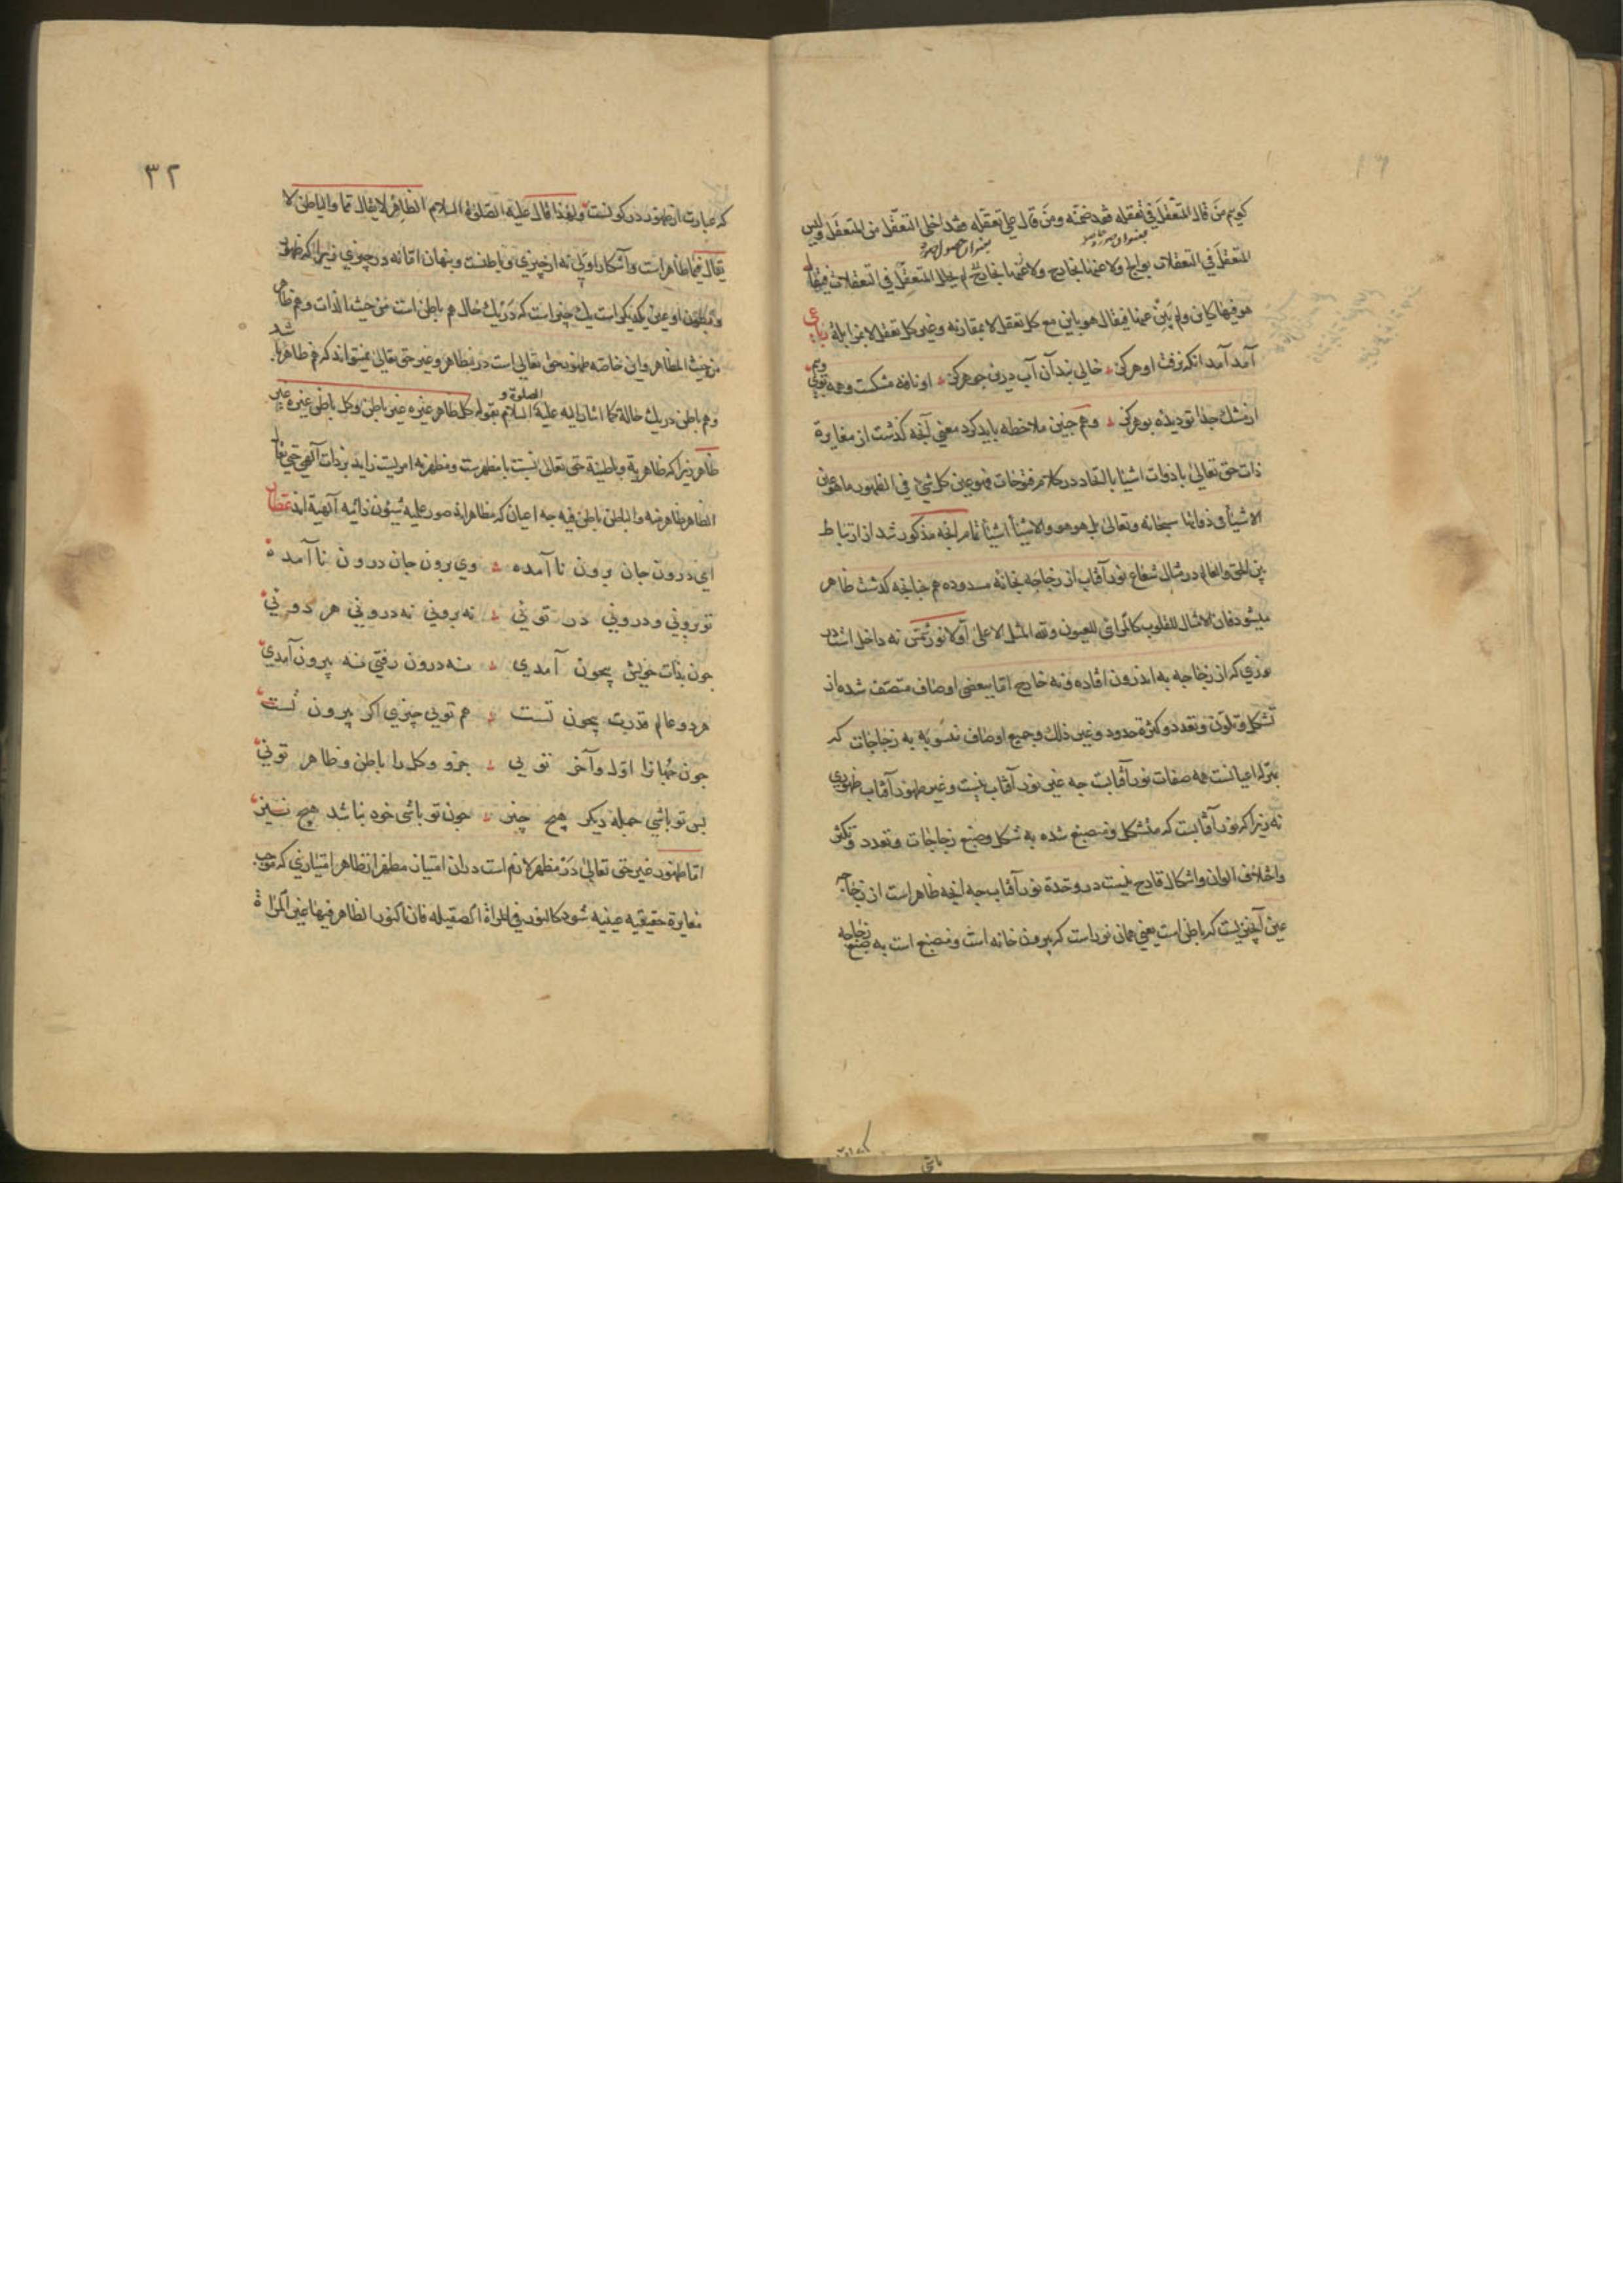 كويم من قال المتعقل في تعقله فقد ضمنه ومن قال علي تعقله فقد اخلى التعقل من المتعقل وليس
المتعقل في التعقلات بوالج ولا عنها بخارج ولا عنها بخارج لم يخل المتعقل في التعقلات فيقال
هو فيها كاين ولم يبن عنها فيقال هو باين مع كل تعقل لا بمقارنة وغير كل تعقل لا بمزايلة
آمد آمد انكه نرفت او هركز خالي نبد آن آب درين جو هركز او نافه مشكست وهمه بوي ويم
از مشك جدا تو ديده بو هركز وهم جنين ملاحظه بايد كرد معني آنجه كذشت از مغايرة
ذات حق تعالى با ذوات اشيا در كلام فتوحات فهو عين كل شئ في الظهور ما هو عين
الاشيا في ذواتها سبحانه وتعالى بل هو هو والاشيا اشيا تمام انجه مذكور شد از ارتباط
بين الحق والعالم در مثال شعاع نور آفتاب از زجاجه بخانه مسدوده هم جنانجه كذشت ظاهر
ميشود فان الامثال للقلوب كالمرائي للعيون ولله المثل الاعلى اولا نور شمس نه داخل است در
نوري كه از زجاجه به اندرون افتاده ونه خارج اما ببعضي اوصاف متصف شده از
تشكل وتلون وتعدد وكثرة حدود وغير ذلك وجميع اوصاف منسوبه به زجاجات كه
بمنزله اعيانست همه صفات نور آفتابست جه غير نور آفتاب نيست وغير ظهور آفتاب ظهوري
نه زيرا كه نور آفتابست كه متشكل ومنصبغ شده به شكل وصبغ زجاجات وتعدد وتكثر
واختلاف الوان واشكال قادح نيست در وحدة نور آفتاب جه انجه ظاهر است از زجاجه
عين آنجيزيست كه باطن است يعني همان نور است كه بيرون خانه است ومنصبغ است به صبغ زجاجه
٣٢
كه عبارت از ظهور در كونست ولهذا قال عليه الصلوة السلام الظاهر لا يقال مما والباطن لا
يقال فيما ظاهر است وآشكارا ولي نه از چيزي وباطنست وپنهان اما نه در چيزي زيرا كه ظهور
وبطون او عين يكديكر است يك چيز است كه در يك حال هم باطن است من حيث الذات وهم ظاهر
من حيث المظاهر واين خاصه ظهور حق تعالى است در مظاهر وغير حق تعالى نميتواند كه هم ظاهر باشد
وهم باطن در يك حالة كما اشار اليه عليه الصلوة و السلام بقوله كل ظاهر غيره غير باطن وكل باطن غيره غير
ظاهر زيرا كه ظاهرية وباطنية حق تعالى نسبت با مظهرست ومظهر نه امريست زايد بر ذات آلهي حتي يقال
الظاهر ظاهر منه والباطن باطن فيه جه اعيان كه مظاهراند صور علميه شئون ذاتيه آلهية اند عطار
اي درون جان برون نا آمده وي برون جان درون نا آمده
تو بروني ودروني در توئي نه بروني نه دروني هر دوئي
جون بذات خويش بيچون آمدي نه درون رفتي نه بيرون آمدي
هر دو عالم قدرت بيچون تست هم توئي چيزي اكر بيرون تست
جون جهانرا اول وآخر تويي جزو وكل را باطن وظاهر توئي
بس تو باشي جمله ديكر هيچ چيز جون تو باشي خود نباشد هيچ نيز
اما ظهور غير حق تعالى در مظهر لازم است در ان امتياز مظهر از ظاهر امتيازي كه موجب
مغايرة حقيقيه عينيه شود كالنور في المراة الصقيله فان النور الظاهر فيها غير المراة